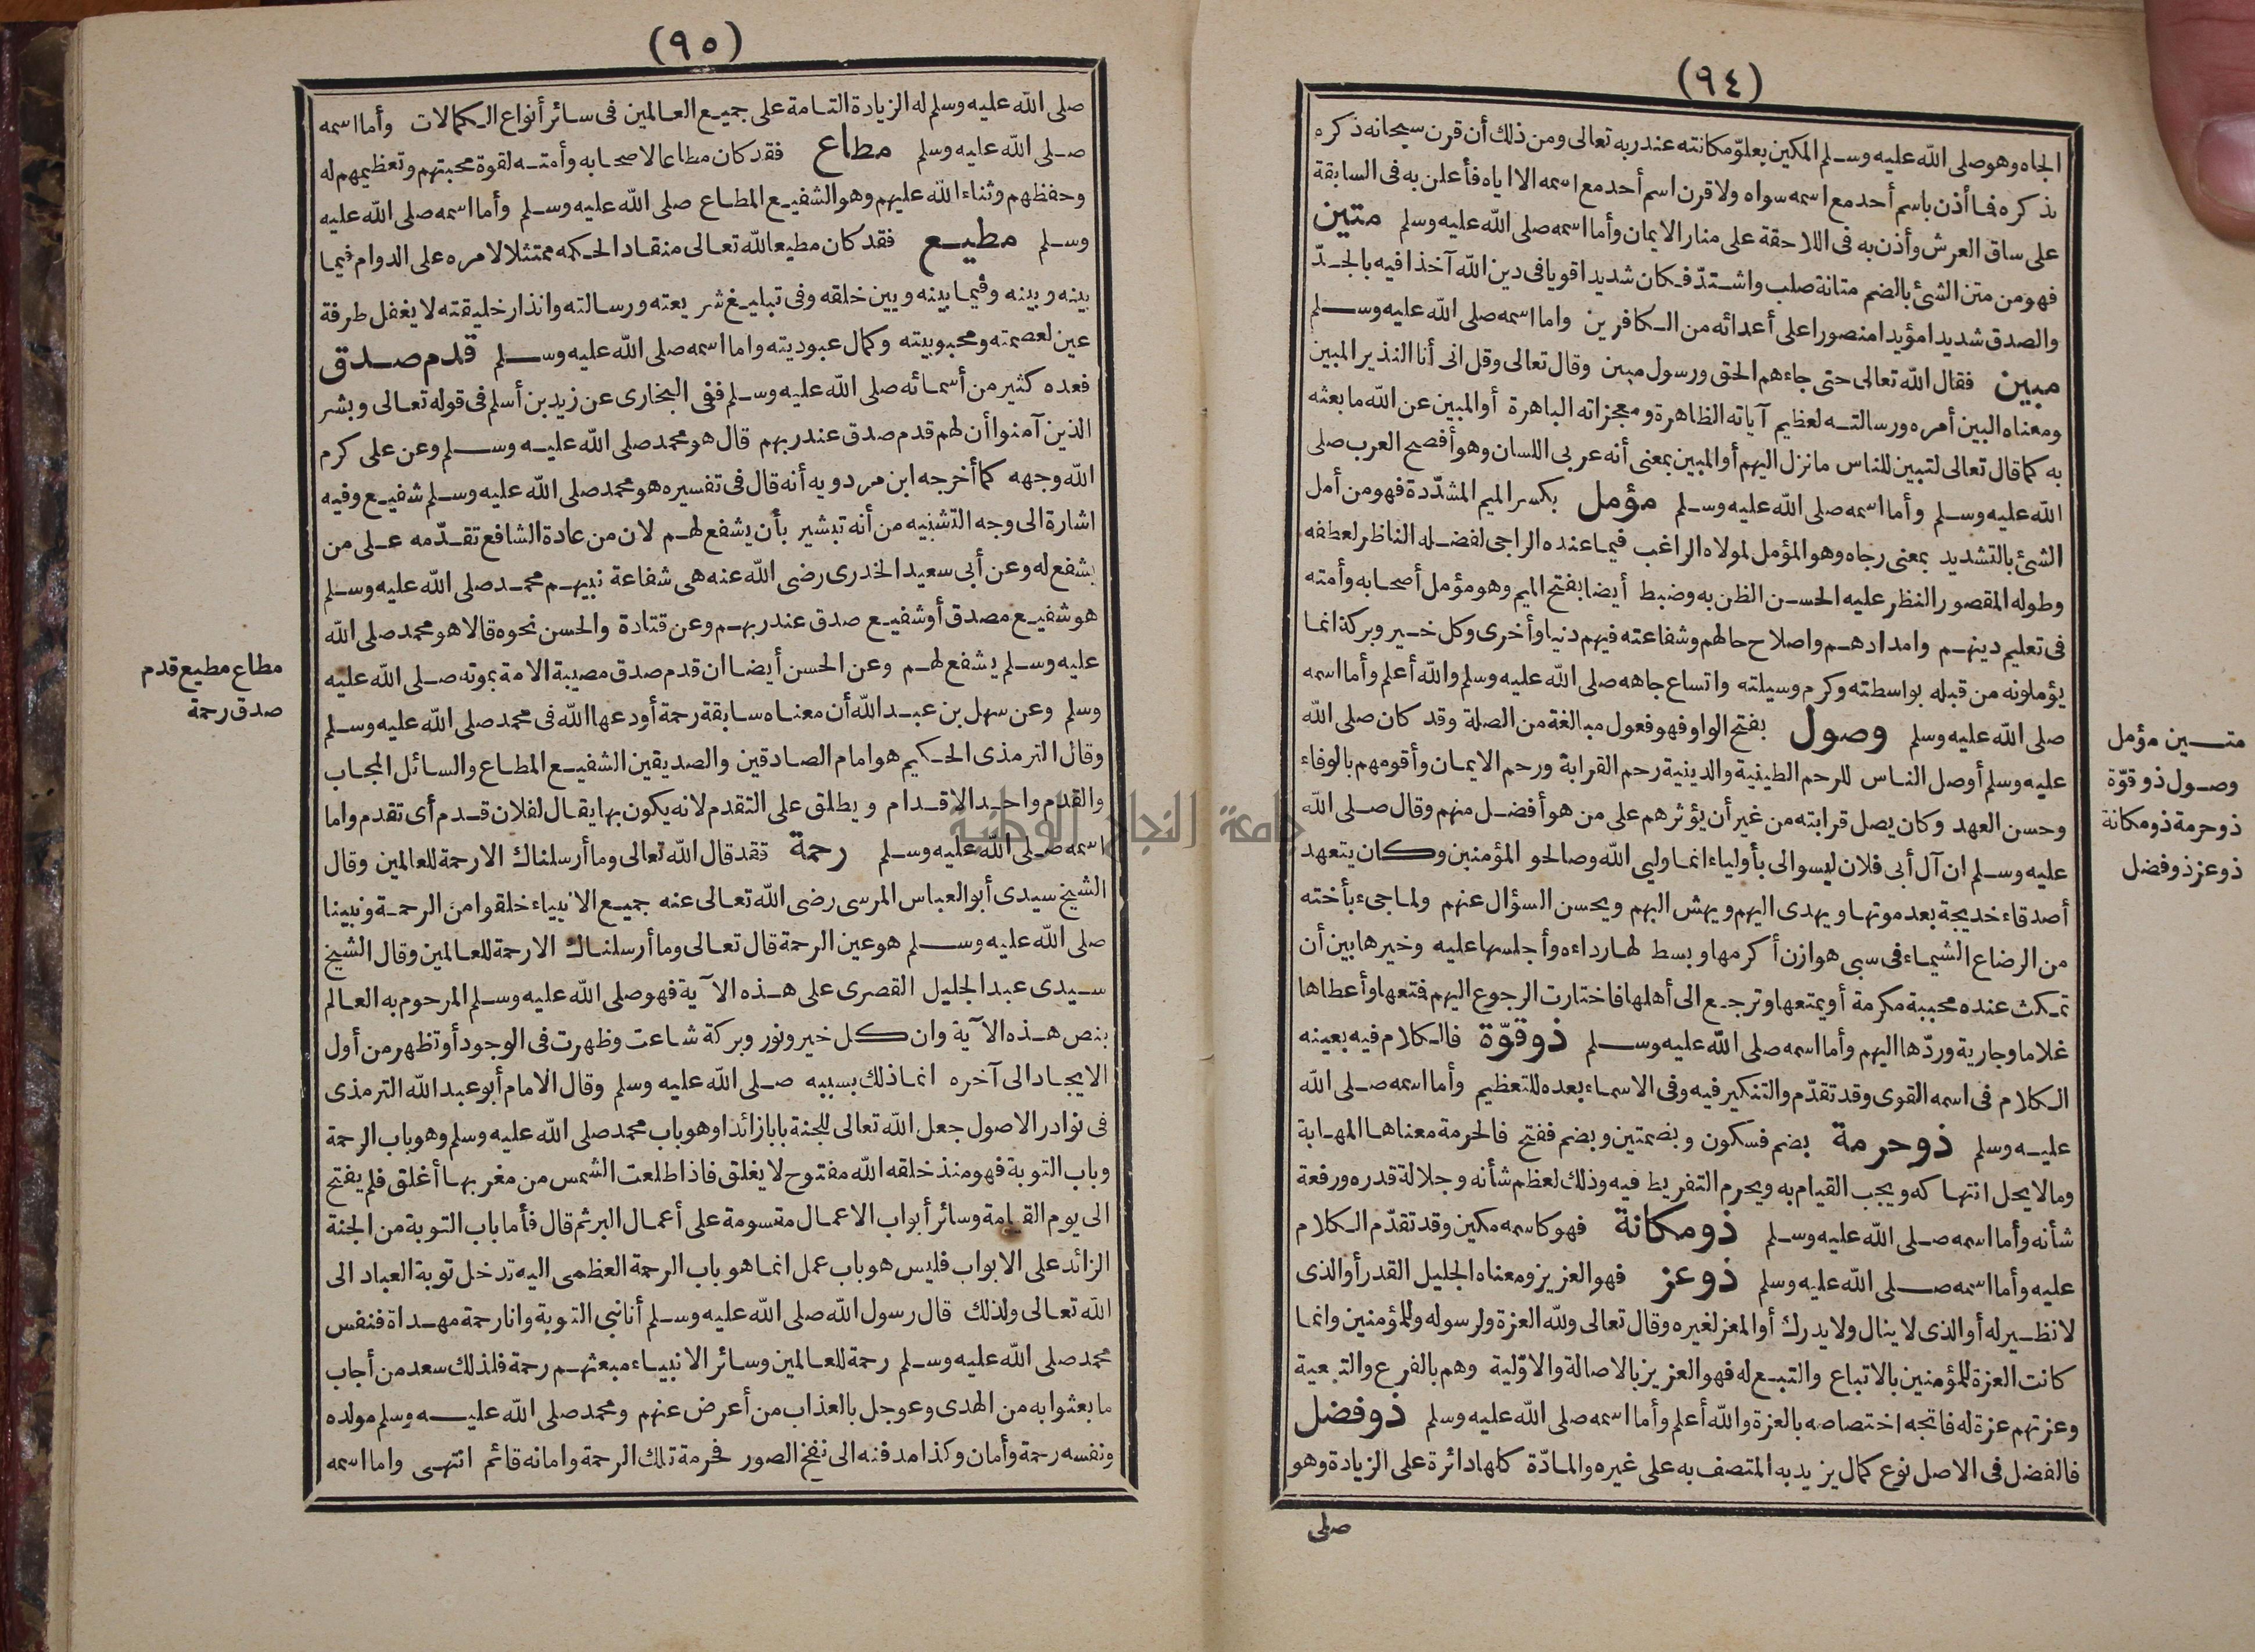 (٩٤)
الجاه وهو صلى الله عليه وسلم المكين بعلوّ مكانته عند ربه تعالى ومن ذلك أن قرن سبحانه ذكره
بذكره فما أذن باسم أحد مع اسمه سواه ولا قرن اسم أحد مع اسمه الا اياه فأعلن به فى السابقة
على ساق العرش وأذن به فى اللاحقة على منار الايمان وأما اسمه صلى الله عليه وسلم متين
فهو من متن الشئ بالضم متانة صلب واشتدّ فكان شديدا قويا فى دين الله آخذا فيه بالجدّ
والصدق شديدا مؤيدا منصورا على أعدائه من الكافرين واما اسمه صلى الله عليه وسلم
مبين فقال الله تعالى حتى جاءهم الحق ورسول مبين وقال تعالى وقل انى أنا النذير المبين
ومعناه البين أمره ورسالته لعظيم آياته الظاهرة ومعجزاته الباهرة أو المبين عن الله ما بعثه
به كما قال تعالى لتبين للناس ما نزل اليهم أو المبين بمعنى أنه عربى اللسان وهو أفصح العرب صلى
الله عليه وسلم وأما اسمه صلى الله عليه وسلم مؤمل بكسر الميم المشدّدة فهو من أمل
الشئ بالتشديد بمعنى رجاه وهو المؤمل لمولاه الراغب فيما عنده الراجى لفضله الناظر لعطفه
وطوله المقصور النظر عليه الحسن الظن به وضبط أيضا بفتح الميم وهو مؤمل أصحابه وأمته
فى تعليم دينهم وامدادهم واصلاح حالهم وشفاعته فيهم دنيا وأخرى وكل خير وبركة انما
يؤملونه من قبله بواسطته وكرم وسيلته واتساع جاهه صلى الله عليه وسلم والله أعلم وأما اسمه
صلى الله عليه وسلم وصول بفتح الواو فهو فعول مبالغة من الصلة وقد كان صلى الله
عليه وسلم أوصل الناس للرحم الطينية والدينية رحم القرابة ورحم الايمان وأقومهم بالوفاء
وحسن العهد وكان يصل قرابته من غير أن يؤثرهم على من هو أفضل منهم وقال صلى الله
عليه وسلم ان آل أبى فلان ليسوا لى بأولياء انما وليى الله وصالحو المؤمنين وكان يتعهد
أصدقاء خديجة بعد موتها ويهدى اليهم ويهش اليهم ويحسن السؤال عنهم ولما جىء بأخته
من الرضاع الشيماء فى سبى هوازن أكرمها وبسط لها رداءه وأجلسها عليه وخيرها بين أن
تمكث عنده محببة مكرمة أو يمتعها وترجع الى أهلها فاختارت الرجوع اليهم فمتعها وأعطاها
غلاما وجارية وردّها اليهم وأما اسمه صلى الله عليه وسلم ذو قوّة فالكلام فيه بعينه
الكلام فى اسمه القوى وقد تقدّم والتنكير فيه وفى الاسماء بعده للتعظيم وأما اسمه صلى الله
عليه وسلم ذو حرمة بضم فسكون وبضمتين وبضم ففتح فالحرمة معناها المهابة
وما لا يحل انتهاكه ويجب القيام به ويحرم التفريط فيه وذلك لعظم شأنه وجلالة قدره ورفعة
شأنه وأما اسمه صلى الله عليه وسلم ذو مكانة فهو كاسمه مكين وقد تقدّم الكلام
عليه وأما اسمه صلى الله عليه وسلم ذو عز فهو العزيز ومعناه الجليل القدر أو الذى
لا نظير له أو الذى لا ينال ولا يدرك أو المعز لغيره وقال تعالى ولله العزة ولرسوله وللمؤمنين وانما
كانت العزة للمؤمنين بالاتباع والتبع له فهو العزيز بالاصالة والاوّلية وهم بالفرع والتبعية
وعزتهم عزة له فاتجه اختصاصه بالعزة والله أعلم وأما اسمه صلى الله عليه وسلم ذو فضل
فالفضل فى الاصل نوع كمال يزيد به المتصف به على غيره والمادّة كلها دائرة على الزيادة وهو
صلى
متين مؤمل
وصول ذو قوّة
ذو حرمة ذو مكانة
ذو عز ذو فضل
(٩٥)
صلى الله عليه وسلم له الزيادة التامة على جميع العالمين فى سائر أنواع الكمالات وأما اسمه
صلى الله عليه وسلم مطاع فقد كان مطاعا لاصحابه وأمته لقوة محبتهم وتعظيمهم له
وحفظهم وثناء الله عليهم وهو الشفيع المطاع صلى الله عليه وسلم وأما اسمه صلى الله عليه
وسلم مطيع فقد كان مطيعا لله تعالى منقادا لحكمه ممتثلا لامره على الدوام فيما
بينه وبينه وفيما بينه وبين خلقه وفى تبليغ شريعته ورسالته وانذار خليقته لا يغفل طرفة
عين لعصمته ومحبوبيته وكمال عبوديته واما اسمه صلى الله عليه وسلم قدم صدق
فعده كثير من أسمائه صلى الله عليه وسلم ففى البخارى عن زيد بن أسلم فى قوله تعالى وبشر
الذين آمنوا أن لهم قدم صدق عند ربهم قال هو محمد صلى الله عليه وسلم وعن على كرم
الله وجهه كما أخرجه ابن مردويه أنه قال فى تفسيره هو محمد صلى الله عليه وسلم شفيع وفيه
اشارة الى وجه التشبيه من أنه تبشير بأن يشفع لهم لان من عادة الشافع تقدّمه على من
يشفع له وعن أبى سعيد الخدرى رضى الله عنه هى شفاعة نبيهم محمد صلى الله عليه وسلم
هو شفيع مصدق أو شفيع صدق عند ربهم وعن قتادة والحسن نحوه قالا هو محمد صلى الله
عليه وسلم يشفع لهم وعن الحسن أيضا ان قدم صدق مصيبة الامة بموته صلى الله عليه
وسلم وعن سهل بن عبد الله أن معناه سابقة رحمة أودعها الله فى محمد صلى الله عليه وسلم
وقال الترمذى الحكيم هو امام الصادقين والصديقين الشفيع المطاع والسائل المجاب
والقدم واحد الاقدام ويطلق على التقدم لانه يكون بها يقال لفلان قدم أى تقدم واما
اسمه صلى الله عليه وسلم رحمة فقد قال الله تعالى وما أرسلناك الا رحمة للعالمين وقال
الشيخ سيدى أبو العباس المرسى رضى الله تعالى عنه جميع الانبياء خلقوا من الرحمة ونبينا
صلى الله عليه وسلم هو عين الرحمة قال تعالى وما أرسلناك الا رحمة للعالمين وقال الشيخ
سيدى عبد الجليل القصرى على هذه الآية فهو صلى الله عليه وسلم المرحوم به العالم
بنص هذه الآية وان كل خير ونور وبركة شاعت وظهرت فى الوجود أو تظهر من أول
الايجاد الى آخره انما ذلك بسببه صلى الله عليه وسلم وقال الامام أبو عبد الله الترمذى
فى نوادر الاصول جعل الله تعالى للجنة بابا زائدا وهو باب محمد صلى الله عليه وسلم وهو باب الرحمة
وباب التوبة فهو منذ خلقه الله مفتوح لا يغلق فاذا طلعت الشمس من مغربها أغلق فلم يفتح
الى يوم القيامة وسائر أبواب الاعمال مقسومة على أعمال البر ثم قال فأما باب التوبة من الجنة
الزائد على الابواب فليس هو باب عمل انما هو باب الرحمة العظمى اليه تدخل توبة العباد الى
الله تعالى ولذلك قال رسول الله صلى الله عليه وسلم أنا نبى التوبة وانا رحمة مهداة فنفس
محمد صلى الله عليه وسلم رحمة للعالمين وسائر الانبياء مبعثهم رحمة فلذلك سعد من أجاب
ما بعثوا به من الهدى وعوجل بالعذاب من أعرض عنهم ومحمد صلى الله عليه وسلم مولده
ونفسه رحمة وأمان وكذا مدفنه الى نفخ الصور فحرمة تلك الرحمة وامانه قائم انتهى واما اسمه
مطاع مطيع قدم
صدق رحمة
جامعة النجاح الوطنية